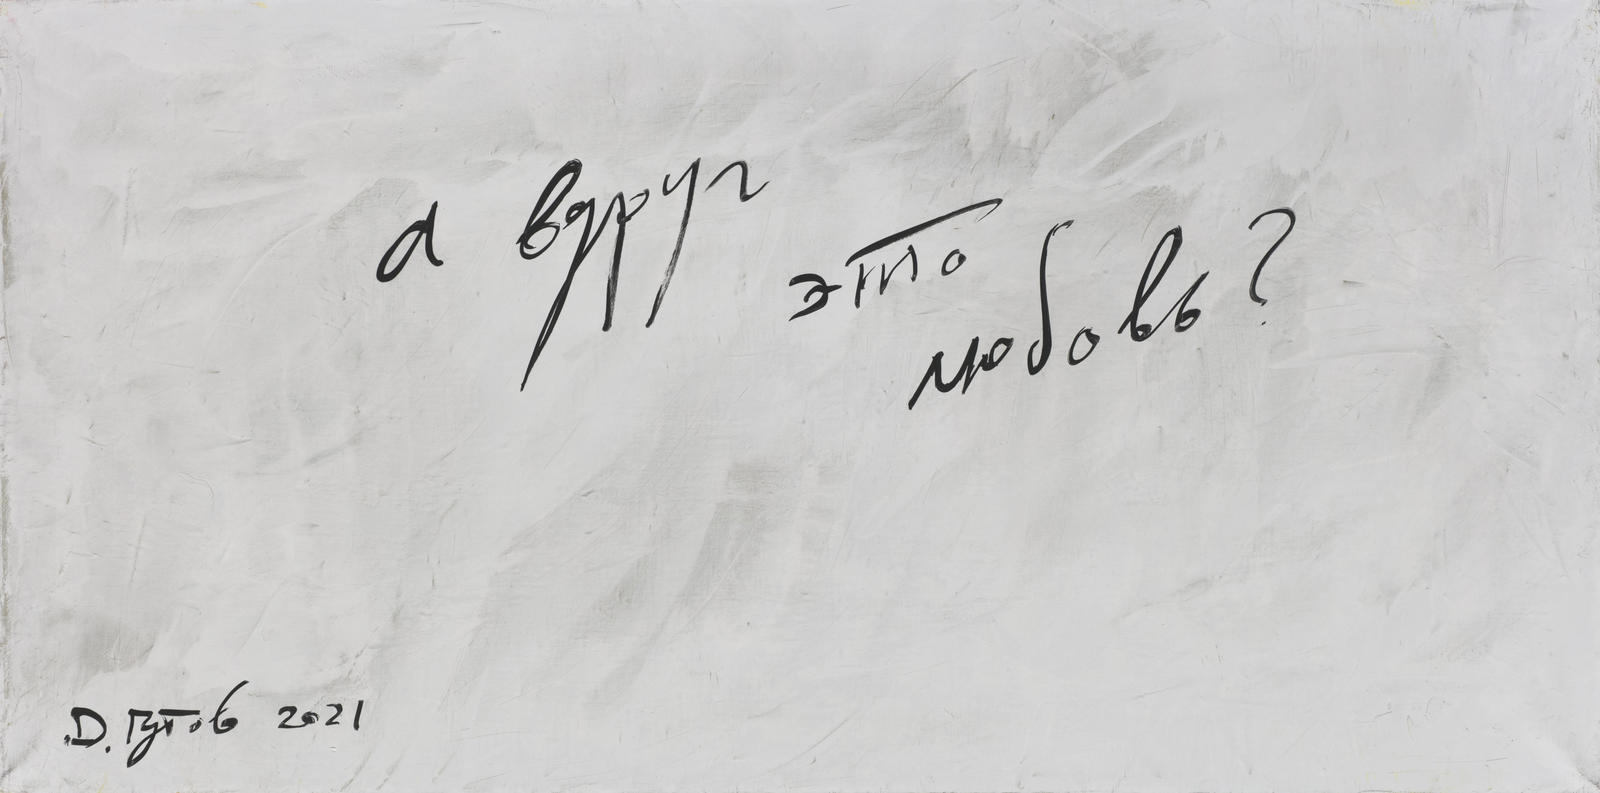 а вдруг
это
любовь?
D. Гутов 2021